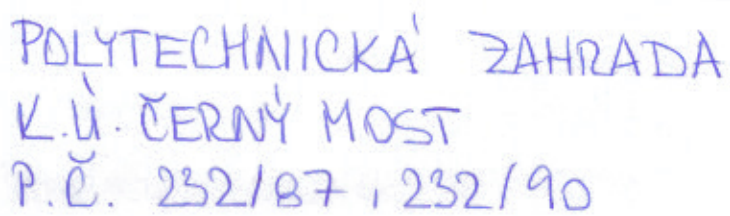 POLYTECHNICKÁ ZAHRADA
K.Ú. ČERNÝ MOST
P.Č. 232/87, 232/90